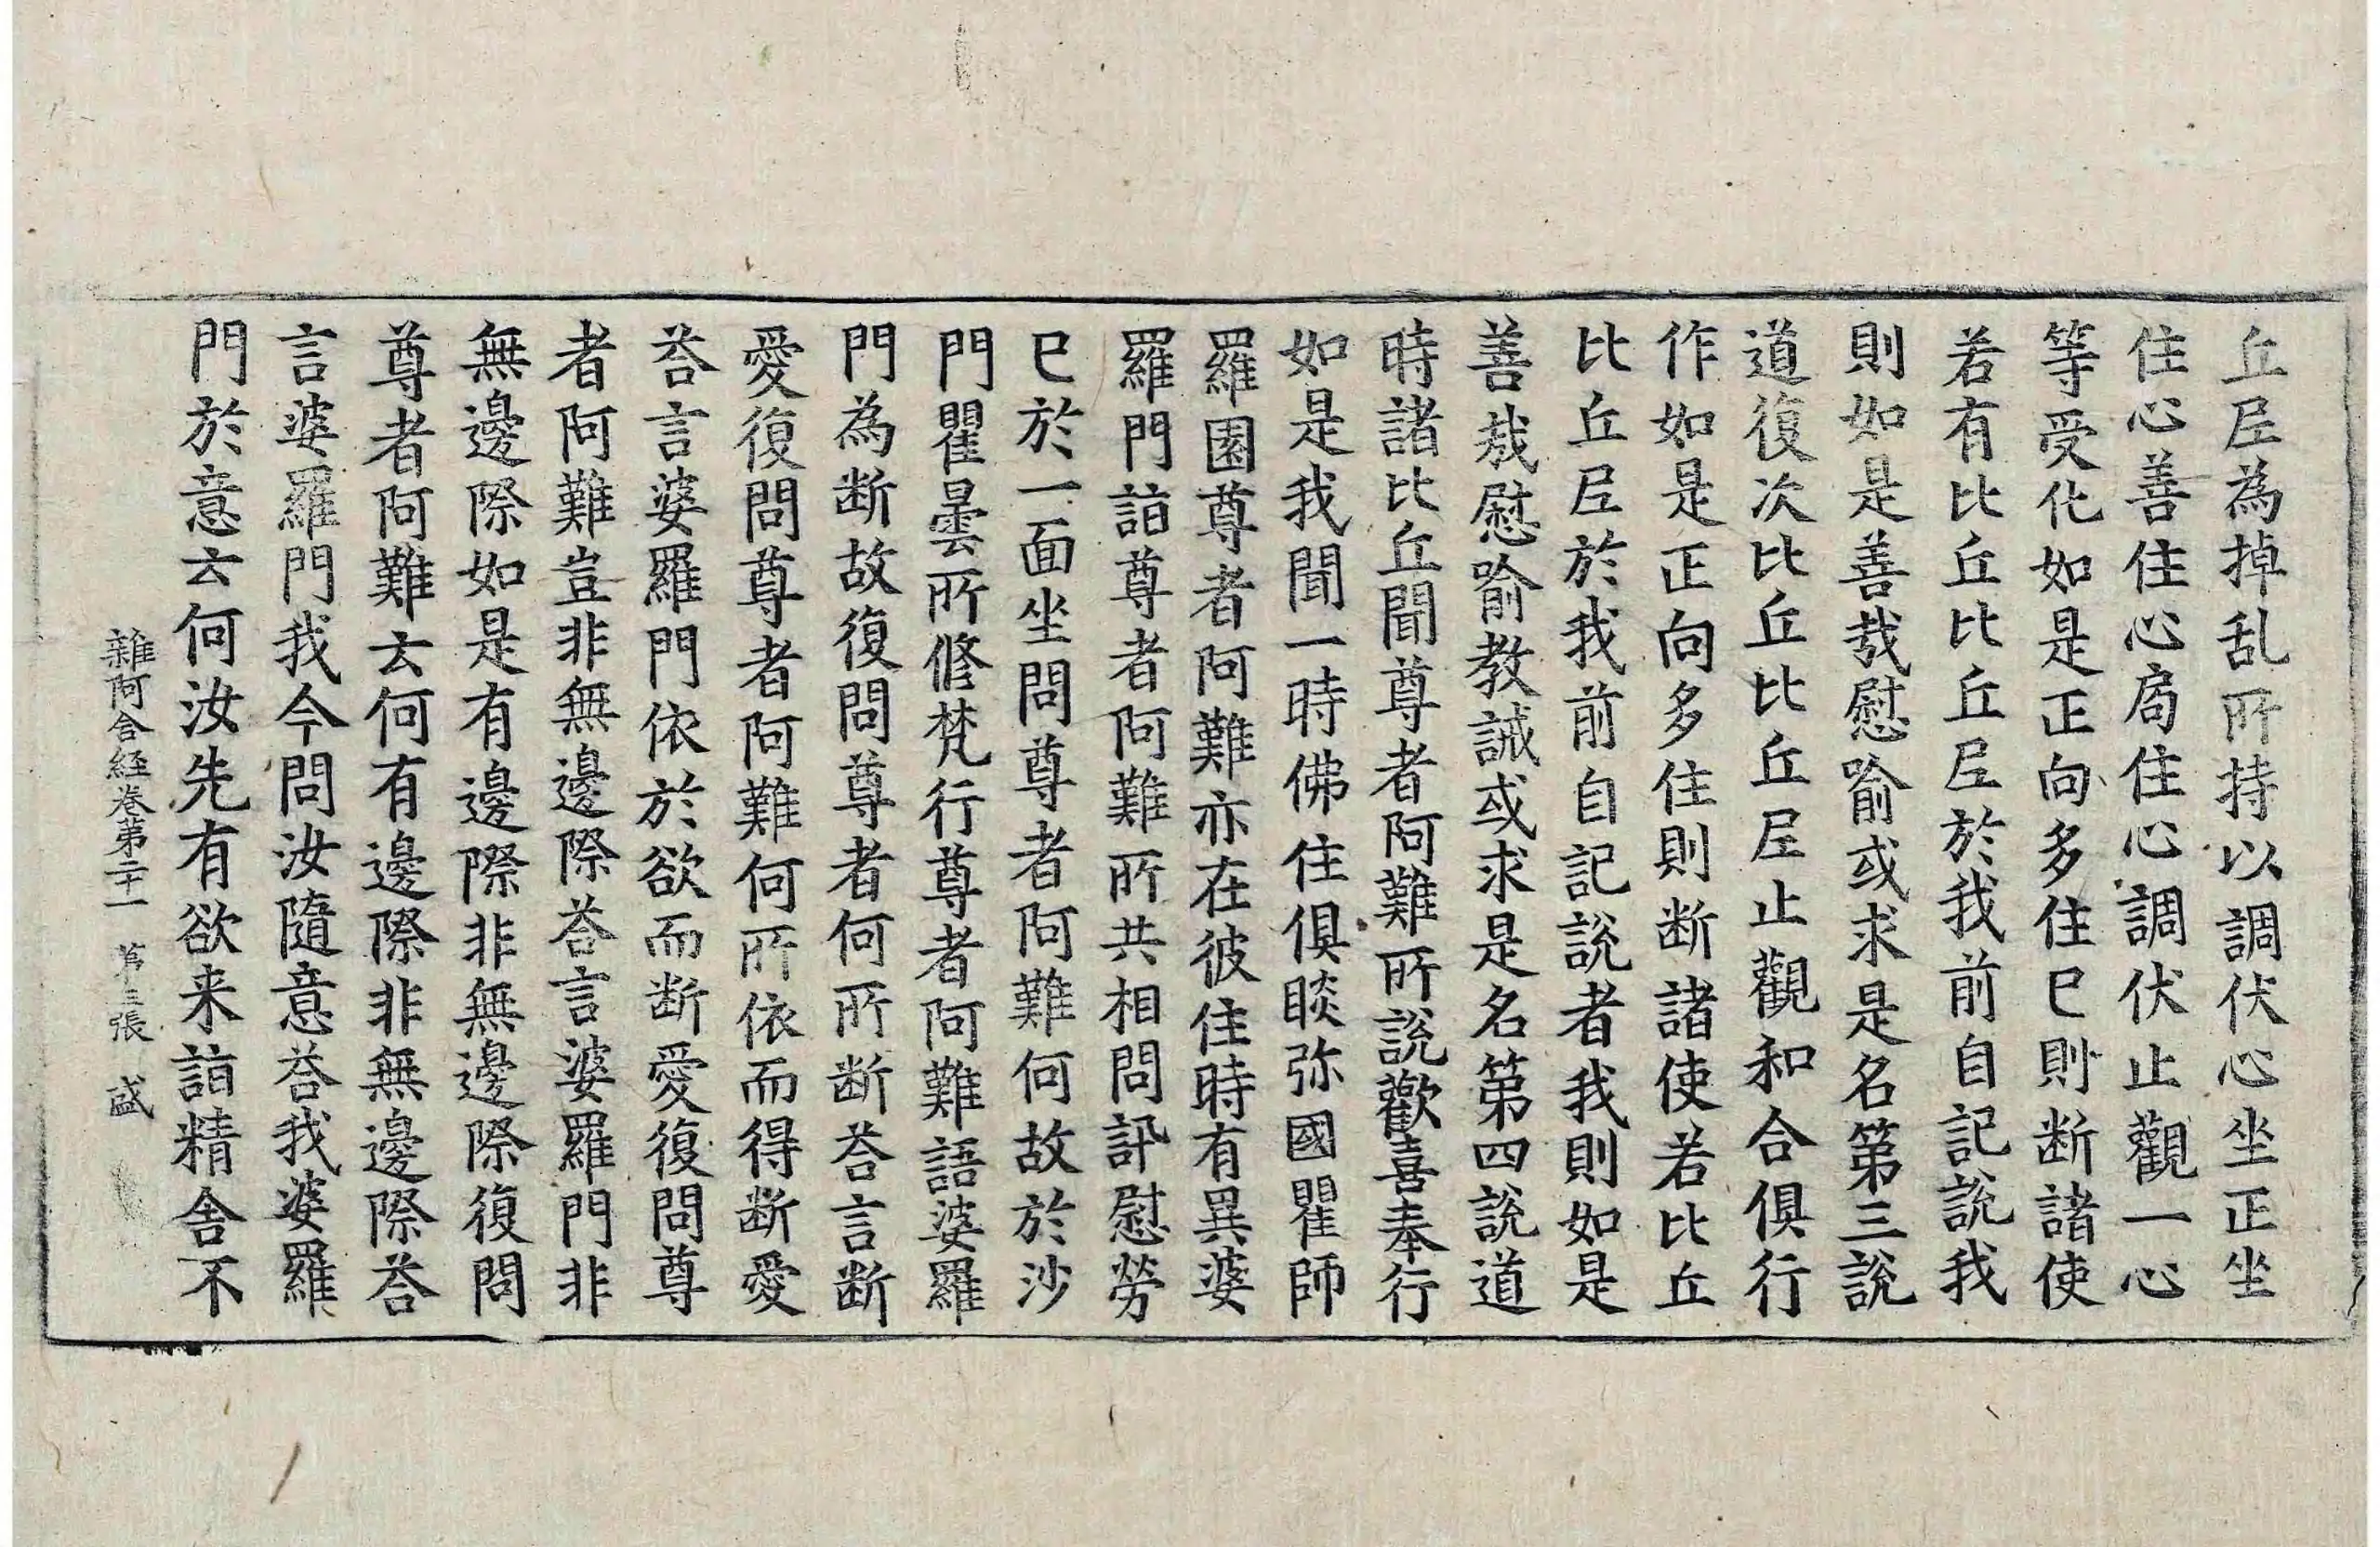 丘尼為掉乱所持以調伏心坐正坐
住心善住心局住心調伏止觀一心
等受化如是正向多住已則断諸使
若有比丘比丘尼於我前自記說我
則如是善哉慰喻或求是名第三說
道復次比丘比丘尼止觀和合俱行
作如是正向多住則断諸使若比丘
比丘尼於我前自記說者我則如是
善哉慰喻教誡或求是名第四說道
時諸比丘聞尊者阿難所說歡喜奉行
如是我聞一時佛住俱睒弥國瞿師
羅園尊者阿難亦在彼住時有異婆
羅門詣尊者阿難所共相問訊慰勞
已於一面坐問尊者阿難何故於沙
門瞿曇所修梵行尊者阿難語婆羅
門為断故復問尊者何所断荅言断
愛復問尊者阿難何所依而得断愛
荅言婆羅門依於欲而断愛復問尊
者阿難豈非無邊際荅言婆羅門非
無邊際如是有邊際非無邊際復問
尊者阿難云何有邊際非無邊際荅
言婆羅門我今問汝隨意荅我婆羅
門於意云何汝先有欲来詣精舎不
雜阿含経卷第二十一 第三張 盛